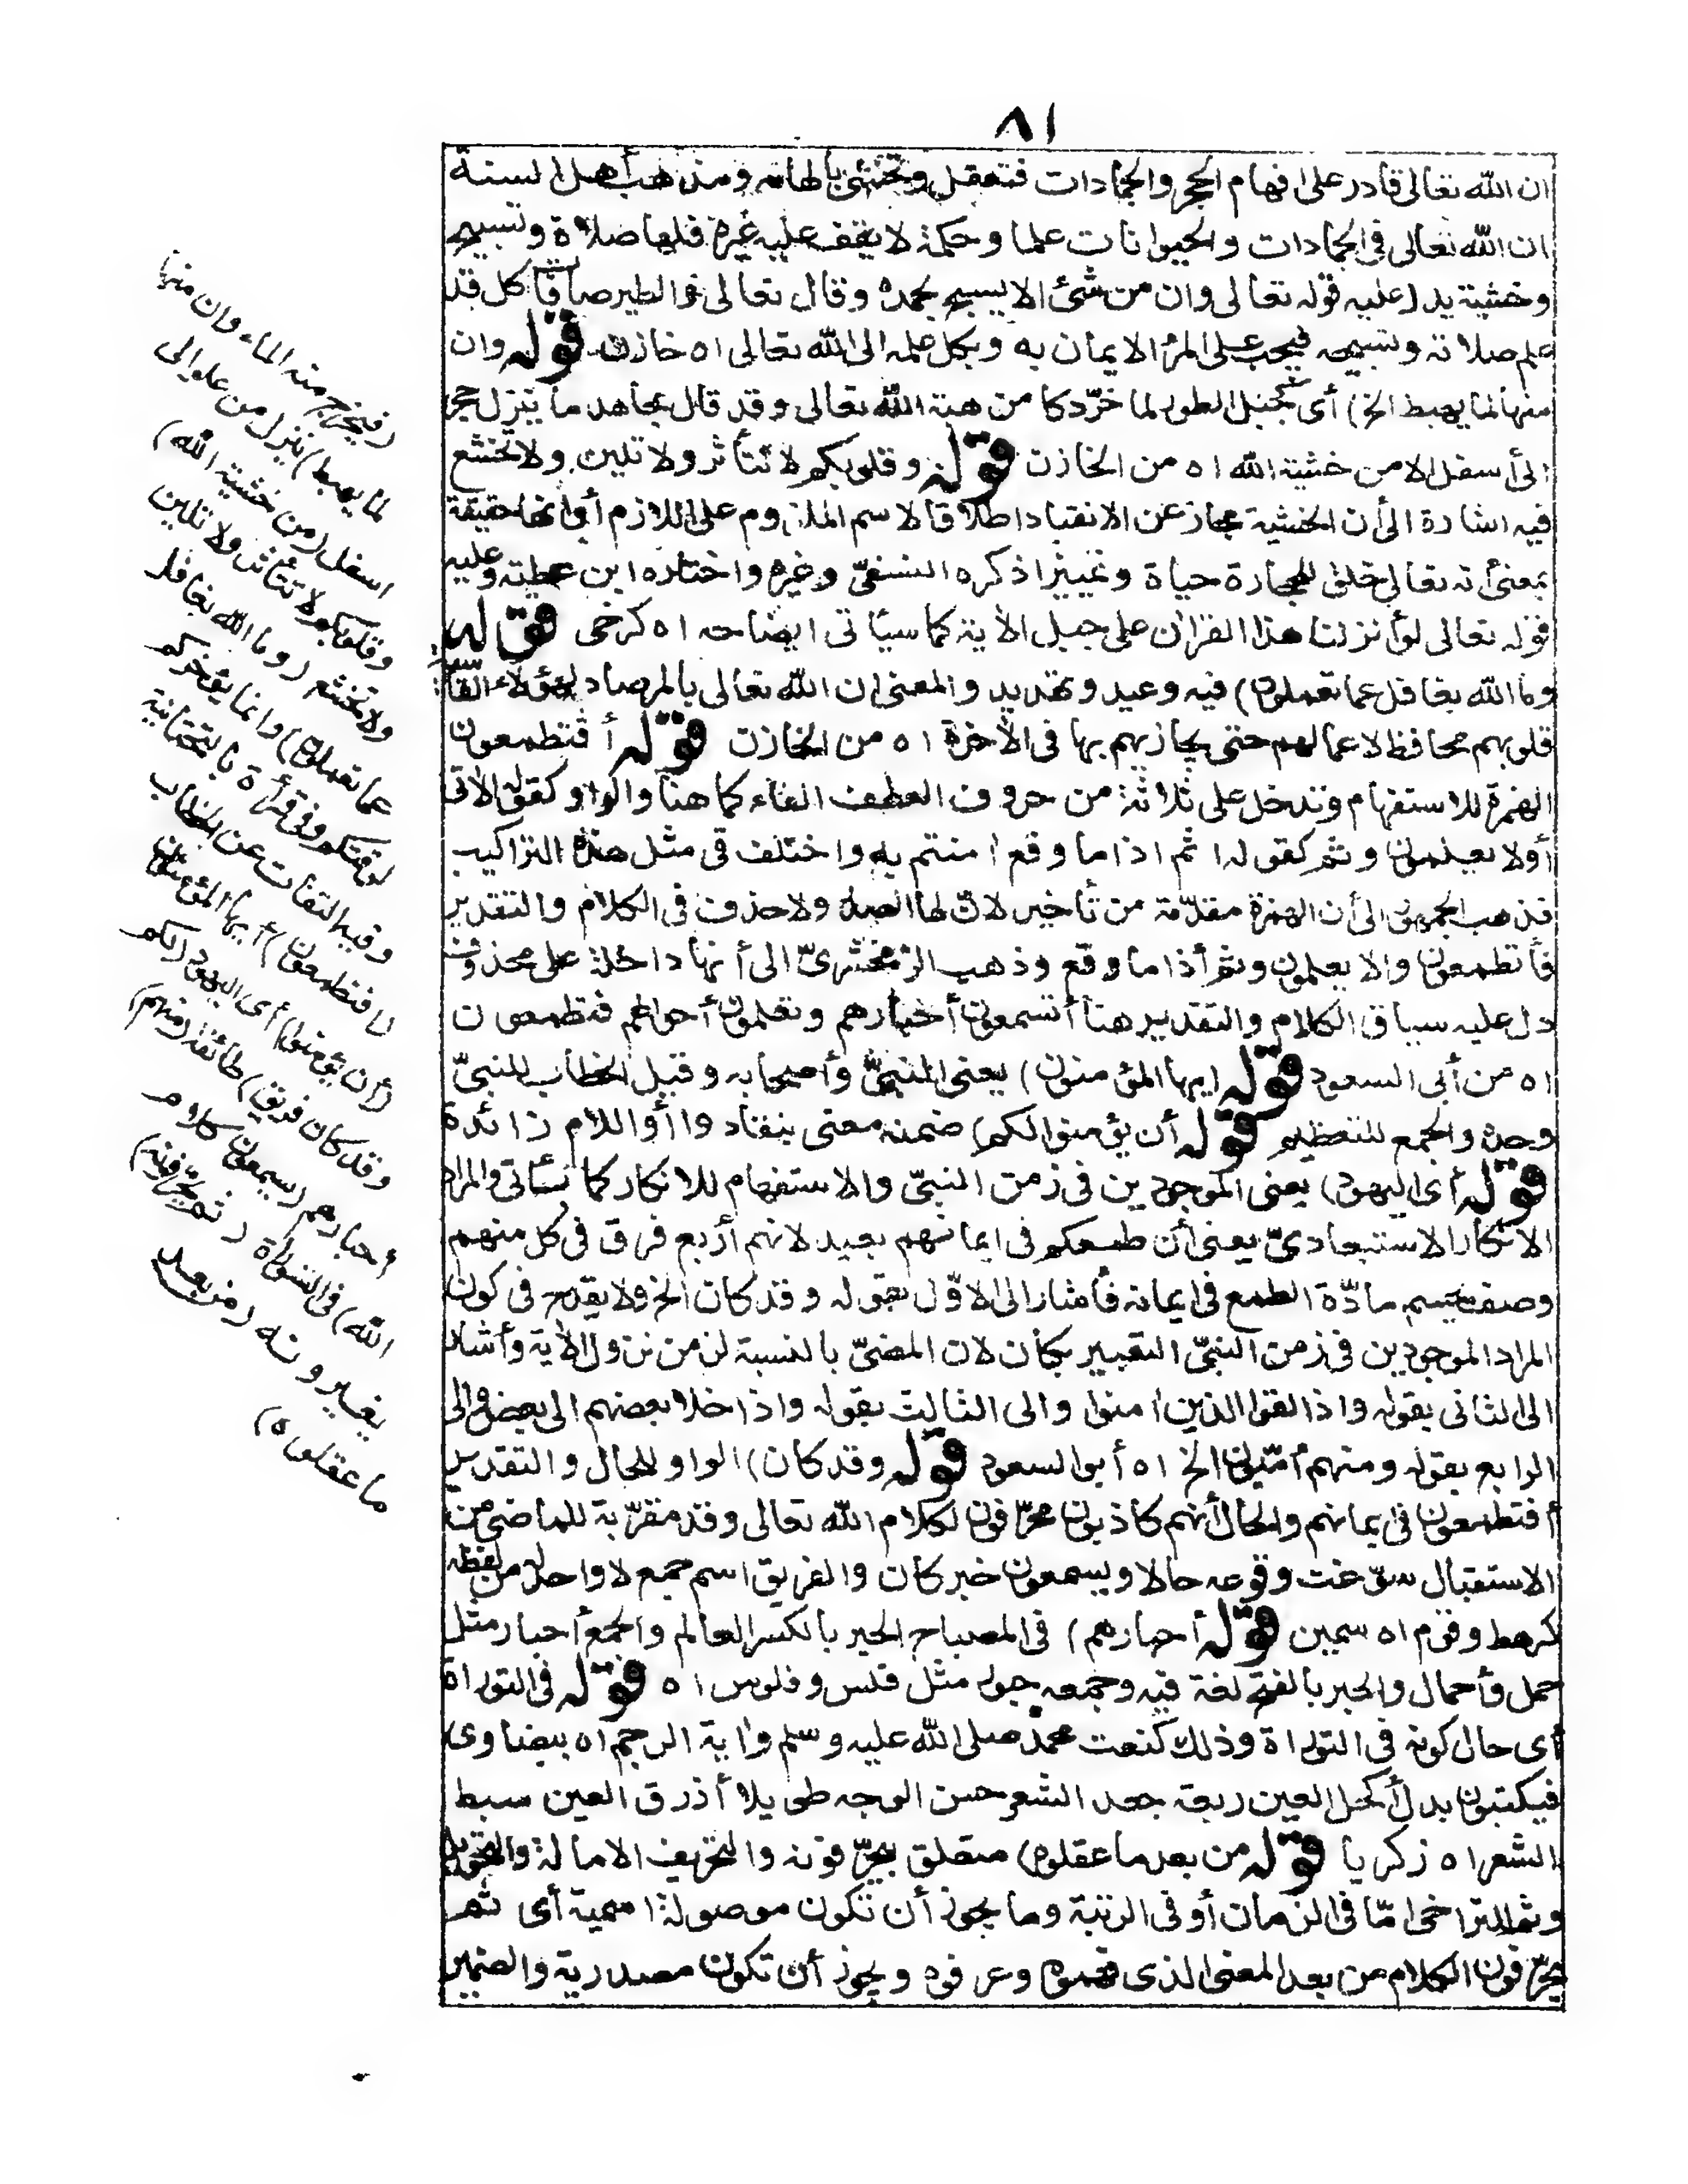 ٨١
ان الله تعالى قادر على افهام الحجر والجمادات فتعقل وتخشى بالهامه ومذهب أهل السنة
ان الله تعالى فى الجمادات والحيوانات علما وحكمة لا يقف عليه غيره فلها صلاة وتسبيح
وخشية يدل عليه قوله تعالى وان من شئ الا يسبح بحمده وقال تعالى والطير صافات كل قد
علم صلاته وتسبيحه فيجب على المرء الايمان به ويكل علمه الى الله تعالى اه خازن قوله وان
منها لما يهبط الخ) أى كجبل الطور لما خرّ دكا من هبته الله تعالى وقد قال مجاهد ما ينزل حجر
الى أسفل الا من خشية الله اه من الخازن قوله وقلوبكم لا تتأثر ولا تلين ولا تخشع
فيه اشارة الى أن الخشية مجاز عن الانقياد اطلاقا لاسم الملزوم على اللازم أو انها حقيقة
بمعنى أنه تعالى خلق للحجارة حياة وتمييزا ذكره النسفىّ وغيره واختاره ابن عطية وعليه
قوله تعالى لو أنزلنا هذا القرآن على جبل الأية كما سيأتى ايضاحه اه كرخى قوله
وما الله بغافل عما تعملون) فيه وعيد وتهديد والمعنى ان الله تعالى بالمرصاد لهؤلاء القاسية
قلوبهم محافظ لاعمالهم حتى يجازيهم بها فى الأخرة اه من الخازن قوله أفتطمعون
الهمزة للاستفهام وتدخل على ثلاثة من حروف العطف الفاء كما هنا والواو كقوله الأتى
أولا يعلمون وثم كقوله اثم اذا ما وقع امنتم به واختلف فى مثل هذه التراكيب
فذهب الجمهور الى أن الهمزة مقدّمة من تأخير لانّ لها الصدر ولا حذف فى الكلام والتقدير
فأتطمعون والا يعلمون وثم أذا ما وقع وذهب الزمخشرىّ الى أنها داخلة على محذوف
دل عليه سياق الكلام والتقدير هنا أتسمعون أخبارهم وتعلمون أحوالهم فتطمعون
اه من أبى السعود قوله (يها المؤمنون) يعنى النبىّ وأصحابه وقيل الخطاب للنبىّ
وحده والجمع للتعظيم قوله أن يؤمنوا لكم) ضمنه معنى ينقادوا أو اللام زائدة
قوله أى اليهود) يعنى الموجودين فى زمن النبىّ والاستفهام للانكار كما سيأتى والمراد
الانكار الاستبعادىّ يعنى أن طمعكم فى ايمانهم بعيد لانهم أربع فرق فى كل منهم
وصف يحسم مادّة الطمع فى ايمانه فأشار الى الاوّل بقوله وقد كان الخ ولا يقدح فى كون
المراد الموجودين فى زمن النبىّ التعبير بكان لان المضىّ بالنسبة لزمن نزول الأية وأشار
الى الثانى بقوله واذا لقوا الذين امنوا والى الثالث بقوله واذا خلا بعضهم الى بعض والى
الرابع بقوله ومنهم أمّيون الخ اه أبو السعود قوله وقد كان) الواو للحال والتقدير
أفتطمعون فى ايمانهم والحال أنهم كاذبون محرّفون لكلام الله تعالى وقد مقرّبة للماضى من
الاستقبال سوّغت وقوعه حالا ويسمعون خبر كان والفريق اسم جمع لا واحد له من لفظه
كرهط وقوم اه سمين قوله أحبارهم) فى المصباح الحبر بالكسر العالم والجمع أحبار مثل
حمل وأحمال والحبر بالفتح لغة فيه وجمعه حبور مثل فلس وفلوس اه قوله فى التوراة
أى حال كونه فى التوراة وذلك كنعت محمد صلى الله عليه وسلم واية الرجم اه بيضاوى
فيكتبون بدل أكحل العين ربعة جعد الشعر حسن الوجه طويلا أزرق العين سبط
الشعر اه زكريا قوله من بعد ما عقلوه) متعلق بيحرّفونه والتحريف الامالة والتحويل
وثم للتراخى امّا فى الزمان أو فى الرتبة وما يجوز أن تكون موصولة اسمية أى ثم
يحرّفون الكلام من بعد المعنى الذى فهموه وعرفوه ويجوز أن تكون مصدرية والضمير
(فيخرج منه الماء وان منها
لما يهبط) ينزل من علو الى
اسفل (من خشية الله)
وقلوبكم لا تتأثر ولا تلين
ولا تخشع (وما الله بغافل
عما تعملون) وانما يؤخركم
لوقتكم وفى قرأة بالتحتانية
وفيه التفات عن الخطاب
(أفتطمعون) أيها المؤمنون
(أن يؤمنوا) أى اليهود (لكم
وقد كان فريق) طائفة (منهم)
أحبارهم (يسمعون كلام
الله) فى التوراة (ثم يحرفونه)
يغيرونه (من بعد
ما عقلوه)